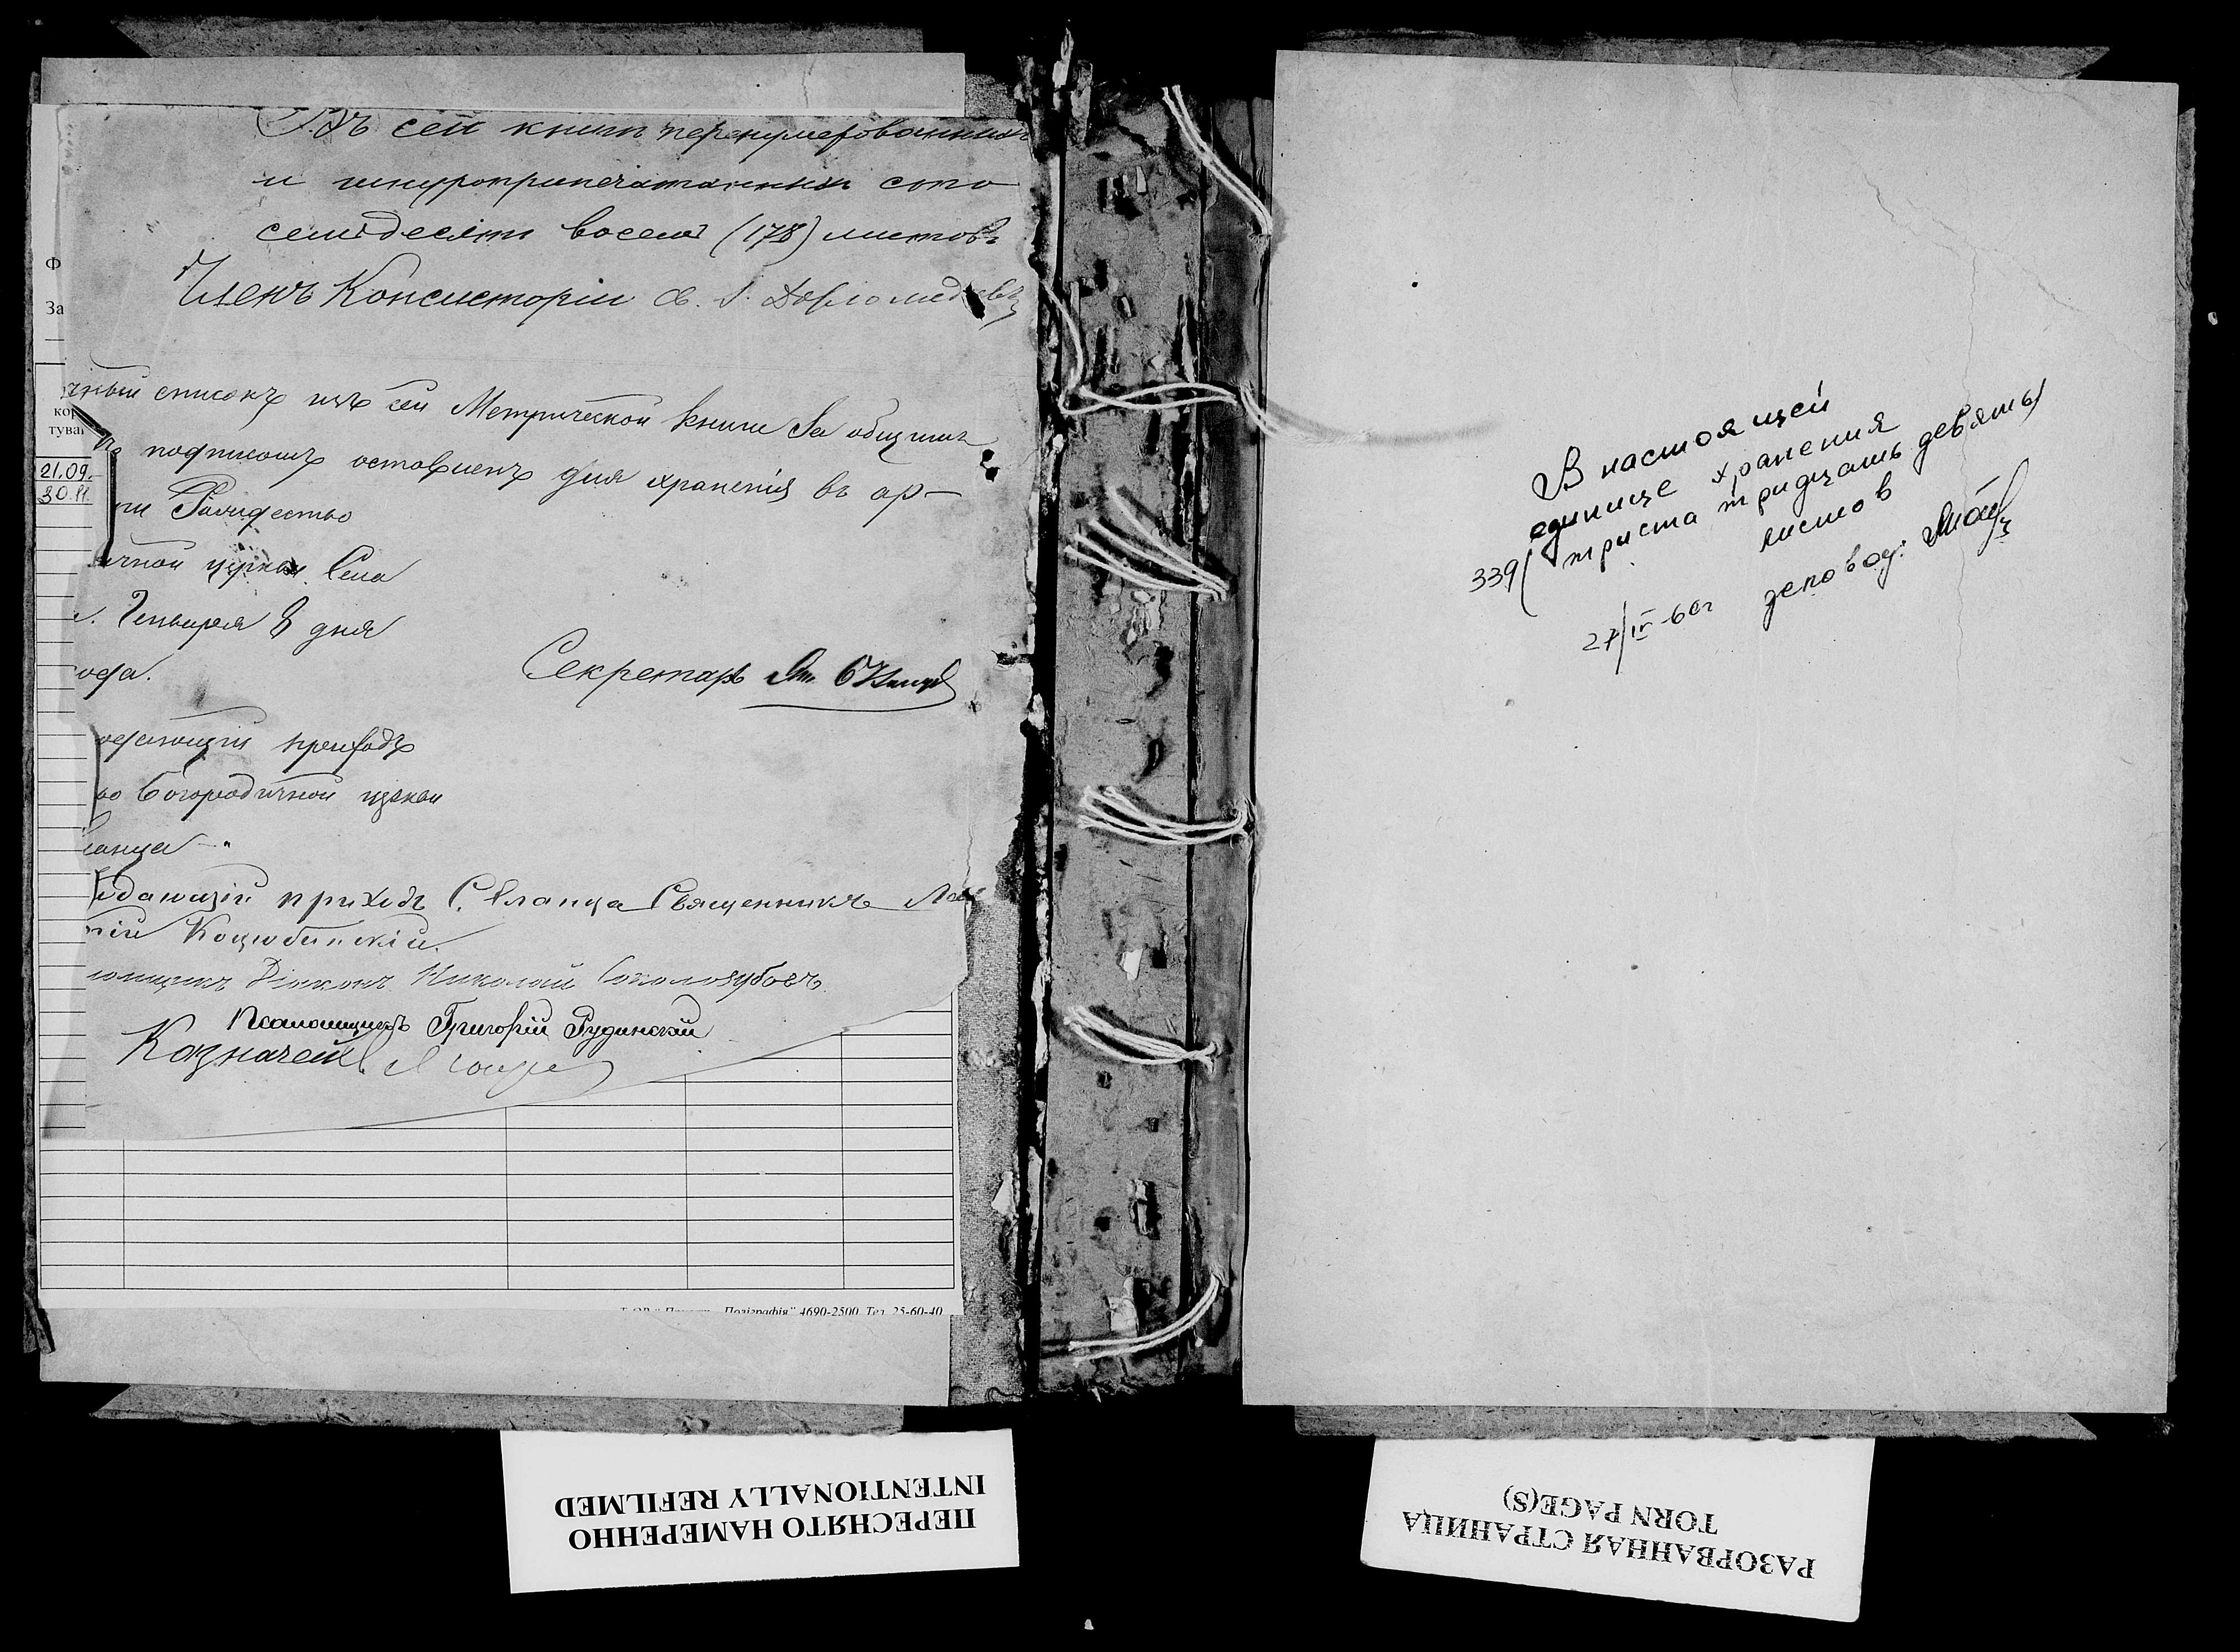 Въ сей книги перенумерованныхъ
и шнуроприпечатанныхъ сто
семьдесятъ восемь (178) листовъ
Членъ Консисторіи св. І.
чный списокъ изъ сей Метрической книги за общимъ
подписомъ оставленъ для хранения въ ар-
Рождество
ичной церкви Села
Генваря 8 дня
ода.
Секретарь
Ф
За
кор
туван
21.09.
30.11
приходъ
во Богородичной церкви
ланца
приходъ С. Еланца Священникъ
гій Коцюбинскій.
Діаконъ Николай Соколозубовъ
Псаломщикъ Григорій Рудинскій
Казначей
Поліграфія" 4690-2500. Тел. 25-60-40
В настоящей
единице хранения
339/ триста тридцать девять/
листов
27/IV-60г деловод:
ПЕРЕСНЯТО НАМЕРЕННО
INTENTIONALLY REFILMED
РАЗОРВАННАЯ СТРАНИЦА
TORN PAGE(S)